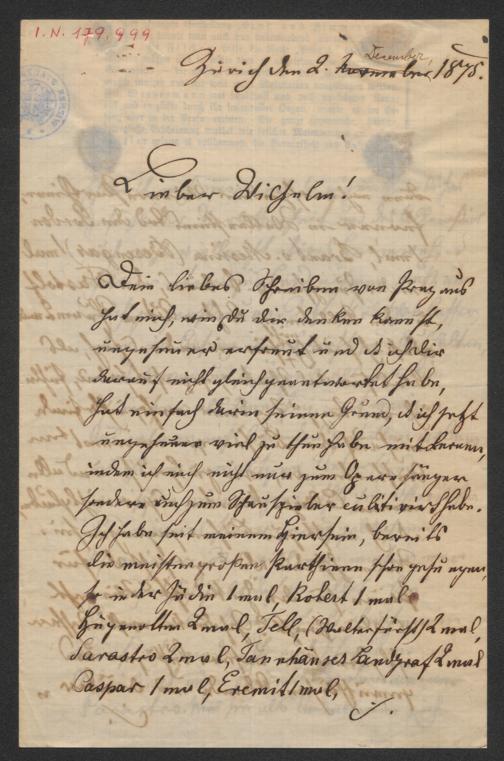 I. N. 179.999
December,
Zürich den 2. November 1875.
Lieber Wilhelm!
Dein liebes Schreiben von Prag aus
hat mich, wie Du dir denken kannst,
ungeheuer erfreut und d ich dir
darauf nicht gleich geantwortet habe,
hat einfach darin seinen Grund, d ich jetzt
ungeheuer viel zu thun habe mit Lernen,
indem ich mich nicht nur zum Opernsänger
sondern auch zum Schauspieler cultivirt habe.
Ich habe seit meinem Hiersein, bereits
die meisten großen Parthieen schon gesungen,
so in der Jüdin 1 mal, Robert 1 mal
Hugenotten 2 mal, Tell, (Walter fürst) 2 mal,
Sarastro 2 mal, Tannhäuser Landgraf 2 mal
Caspar 1 mal, Eremit 1 mal,